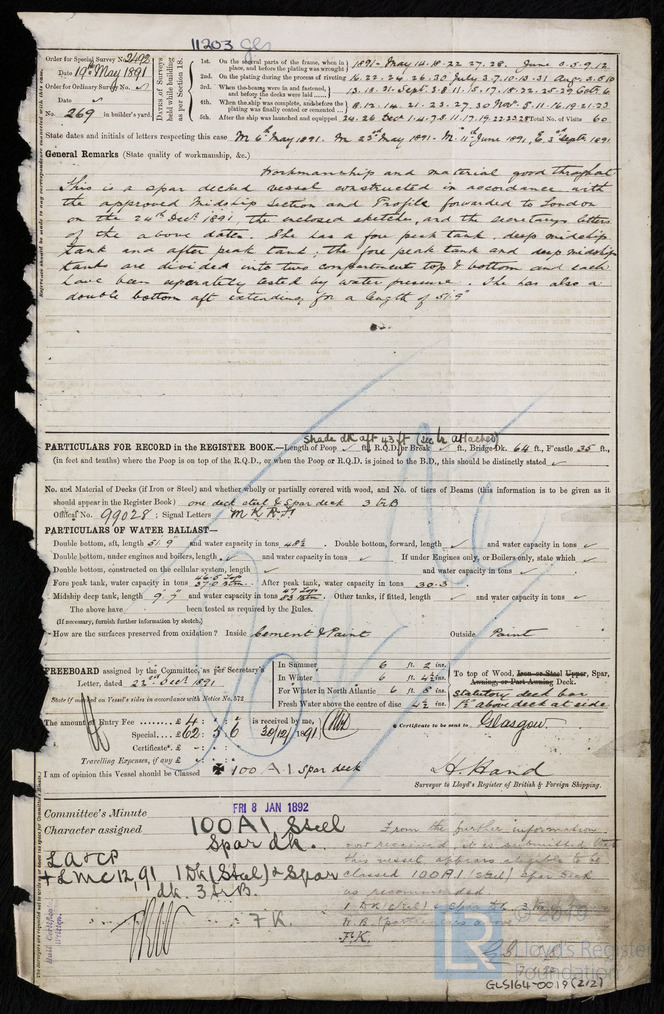 11203 gls
Order for Special Survey No. 2492
Date 19th May 1891
Order for Ordinary Survey No.
Date
No. 269 in builder's yard.
Dates of Surveys held while building as per Section 18.
1st. On the several parts of the frame, when in place, and before the plating was wrought 1891 - May 14. 18. 22. 27. 28. June 3. 5. 9. 12
2nd. On the plating during the process of riveting 16. 22. 24. 26. 30 July 3. 7. 10. 13. 31 Aug. 3. 5. 10
3rd. When the beams were in and fastened, and before the decks were laid
4th. When the ship was complete, and before the plating was finally coated or cemented 8. 12. 14. 21. 23. 27. 30 Nov. 5. 11. 16. 19. 21. 23
5th. After the ship was launched and equipped 24. 26 Dec 1. 4. 7. 8. 11. 17. 19. 22 23 28 Total No. of Visits 60
State dates and initials of letters respecting this case M 6th May 1891. M 23rd May 1891 - M. 11th June 1891, E. 3rd Septr 1891
General Remarks (State quality of workmanship, &c.)
Workmanship and material good throughout
This is a spar decked vessel constructed in accordance with
the approved Midship Section and Profile forwarded to London
on the 24th Decr 1891, the inclosed sketches, and the secretarys letters
of the above dates. She has a fore peak tank, deep midship
tank and after peak tank; the fore peak tank and deep midship
tanks are divided into two compartments top & bottom and each
have been separately tested by water pressure. She has also a
double bottom aft extending for a length of 51.9"
Shade dk aft 43 ft (see lr attached)
PARTICULARS FOR RECORD in the REGISTER BOOK.—Length of Poop ✓ ft., R.Q.D. or Break ✓ ft., Bridge Dk. 64 ft., F'castle 35 ft.,
(in feet and tenths) where the Poop is on top of the R.Q.D., or when the Poop or R.Q.D. is joined to the B.D., this should be distinctly stated ✓
No. and Material of Decks (if Iron or Steel) and whether wholly or partially covered with wood, and No. of tiers of Beams (this information is to be given as it
should appear in the Register Book) one deck steel & Spar deck 3 Tr B
Official No. 99028; Signal Letters
PARTICULARS OF WATER BALLAST—
Double bottom, aft, length 51.9" and water capacity in tons 48½. Double bottom, forward, length ✓ and water capacity in tons ✓
Double bottom, under engines and boilers, length ✓ and water capacity in tons ✓ If under Engines only, or Boilers only, state which ✓
Double bottom, constructed on the cellular system, length ✓ and water capacity in tons ✓
Fore peak tank, water capacity in tons After peak tank, water capacity in tons 30.3
Midship deep tank, length 9.9" and water capacity in tons Other tanks, if fitted, length ✓ and water capacity in tons ✓
The above have been tested as required by the Rules.
(If necessary, furnish further information by sketch.)
How are the surfaces preserved from oxidation? Inside Cement & Paint Outside Paint
FREEBOARD assigned by the Committee, as per Secretary's
Letter, dated 22nd Decr 1891
State if marked on Vessel's sides in accordance with Notice No. 572
In Summer 6 ft. 2 ins.
In Winter 6 ft. 4½ ins.
For Winter in North Atlantic 6 ft. 8 ins.
Fresh Water above the centre of disc 4½ ins.
To top of Wood, Iron or Steel Upper, Spar,
Awning, or Part Awning Deck.
statutory deck bar
1½" above deck at side
The amount of Entry Fee £ 4 : :
Special £ 62 : 5 6
is received by me,
30/12/1891
Certificate* £
Travelling Expenses, if any £
* Certificate to be sent to Glasgow
I am of opinion this Vessel should be Classed ✠ 100 A 1 Spar deck
H. Hand
Surveyor to Lloyd's Register of British & Foreign Shipping.
Committee's Minute FRI 8 JAN 1892
Character assigned 100A1 Steel
Spar dk.
LA & CP
+ LMC 12,91 1 Dk (Steel) & Spar
dk. 3 Tr B.
F K.
From the further information
now received, it is submitted that
this vessel appears eligible to be
classed 100A1 (steel) Spar Deck
as recommended.
F.K.
© 2019
LR
Lloyd's Register
Foundation
GLS164-0019 (212)